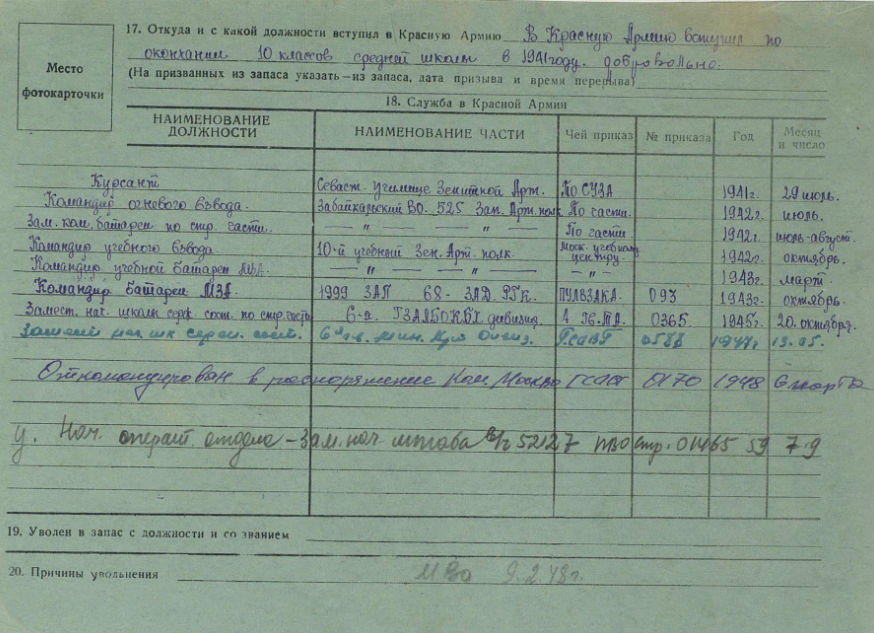 17. Откуда и с какой должности вступил в Красную Армию В Красную Армию вступил по
окончании 10 классов средней школы в 1941 году. добровольно.
(На призванных из запаса указать—из запаса, дата призыва и время перерыва)
Место
фотокарточки
18. Служба в Красной Армии
НАИМЕНОВАНИЕ ДОЛЖНОСТИ НАИМЕНОВАНИЕ ЧАСТИ Чей приказ № приказа Год Месяц и число
Курсант Севаст. училище Зенитной Арт. По СУЗА 1941г. 29 июль.
Командир огневого взвода. Забайкальский ВО. 525 Зен. Арт. полк По части. 1942г. июль.
Зам. ком. батареи по стр. части. — " — — " — По части. 1942г. июль-август.
Командир учебного взвода 10-й учебный Зен. Арт. полк. Моск. учебному центру. 1942г. октябрь.
Командир учебной батареи МЗА. — " — — " — — " — 1943г. март.
Командир батареи МЗА. 1999 ЗАП 68- ЗАД РГК. 093 1943г. октябрь.
Замест. нач. школы серж. сост. по стр. части 6-я дивизия 1. Гв. ТА. 0365. 1945г. 20. октября.
нач. шк. серж. сост. 6 Гв. мин. 0588 1947г. 13.05.
Откомандирован в распоряжение Ком. Москва 0170 1948 6 марта
у. Нач. операт. отдела – Зам. нач. штаба в/ч 52127 59 7.9
19. Уволен в запас с должности и со званием
20. Причины увольнения МВО 9.2.48г.